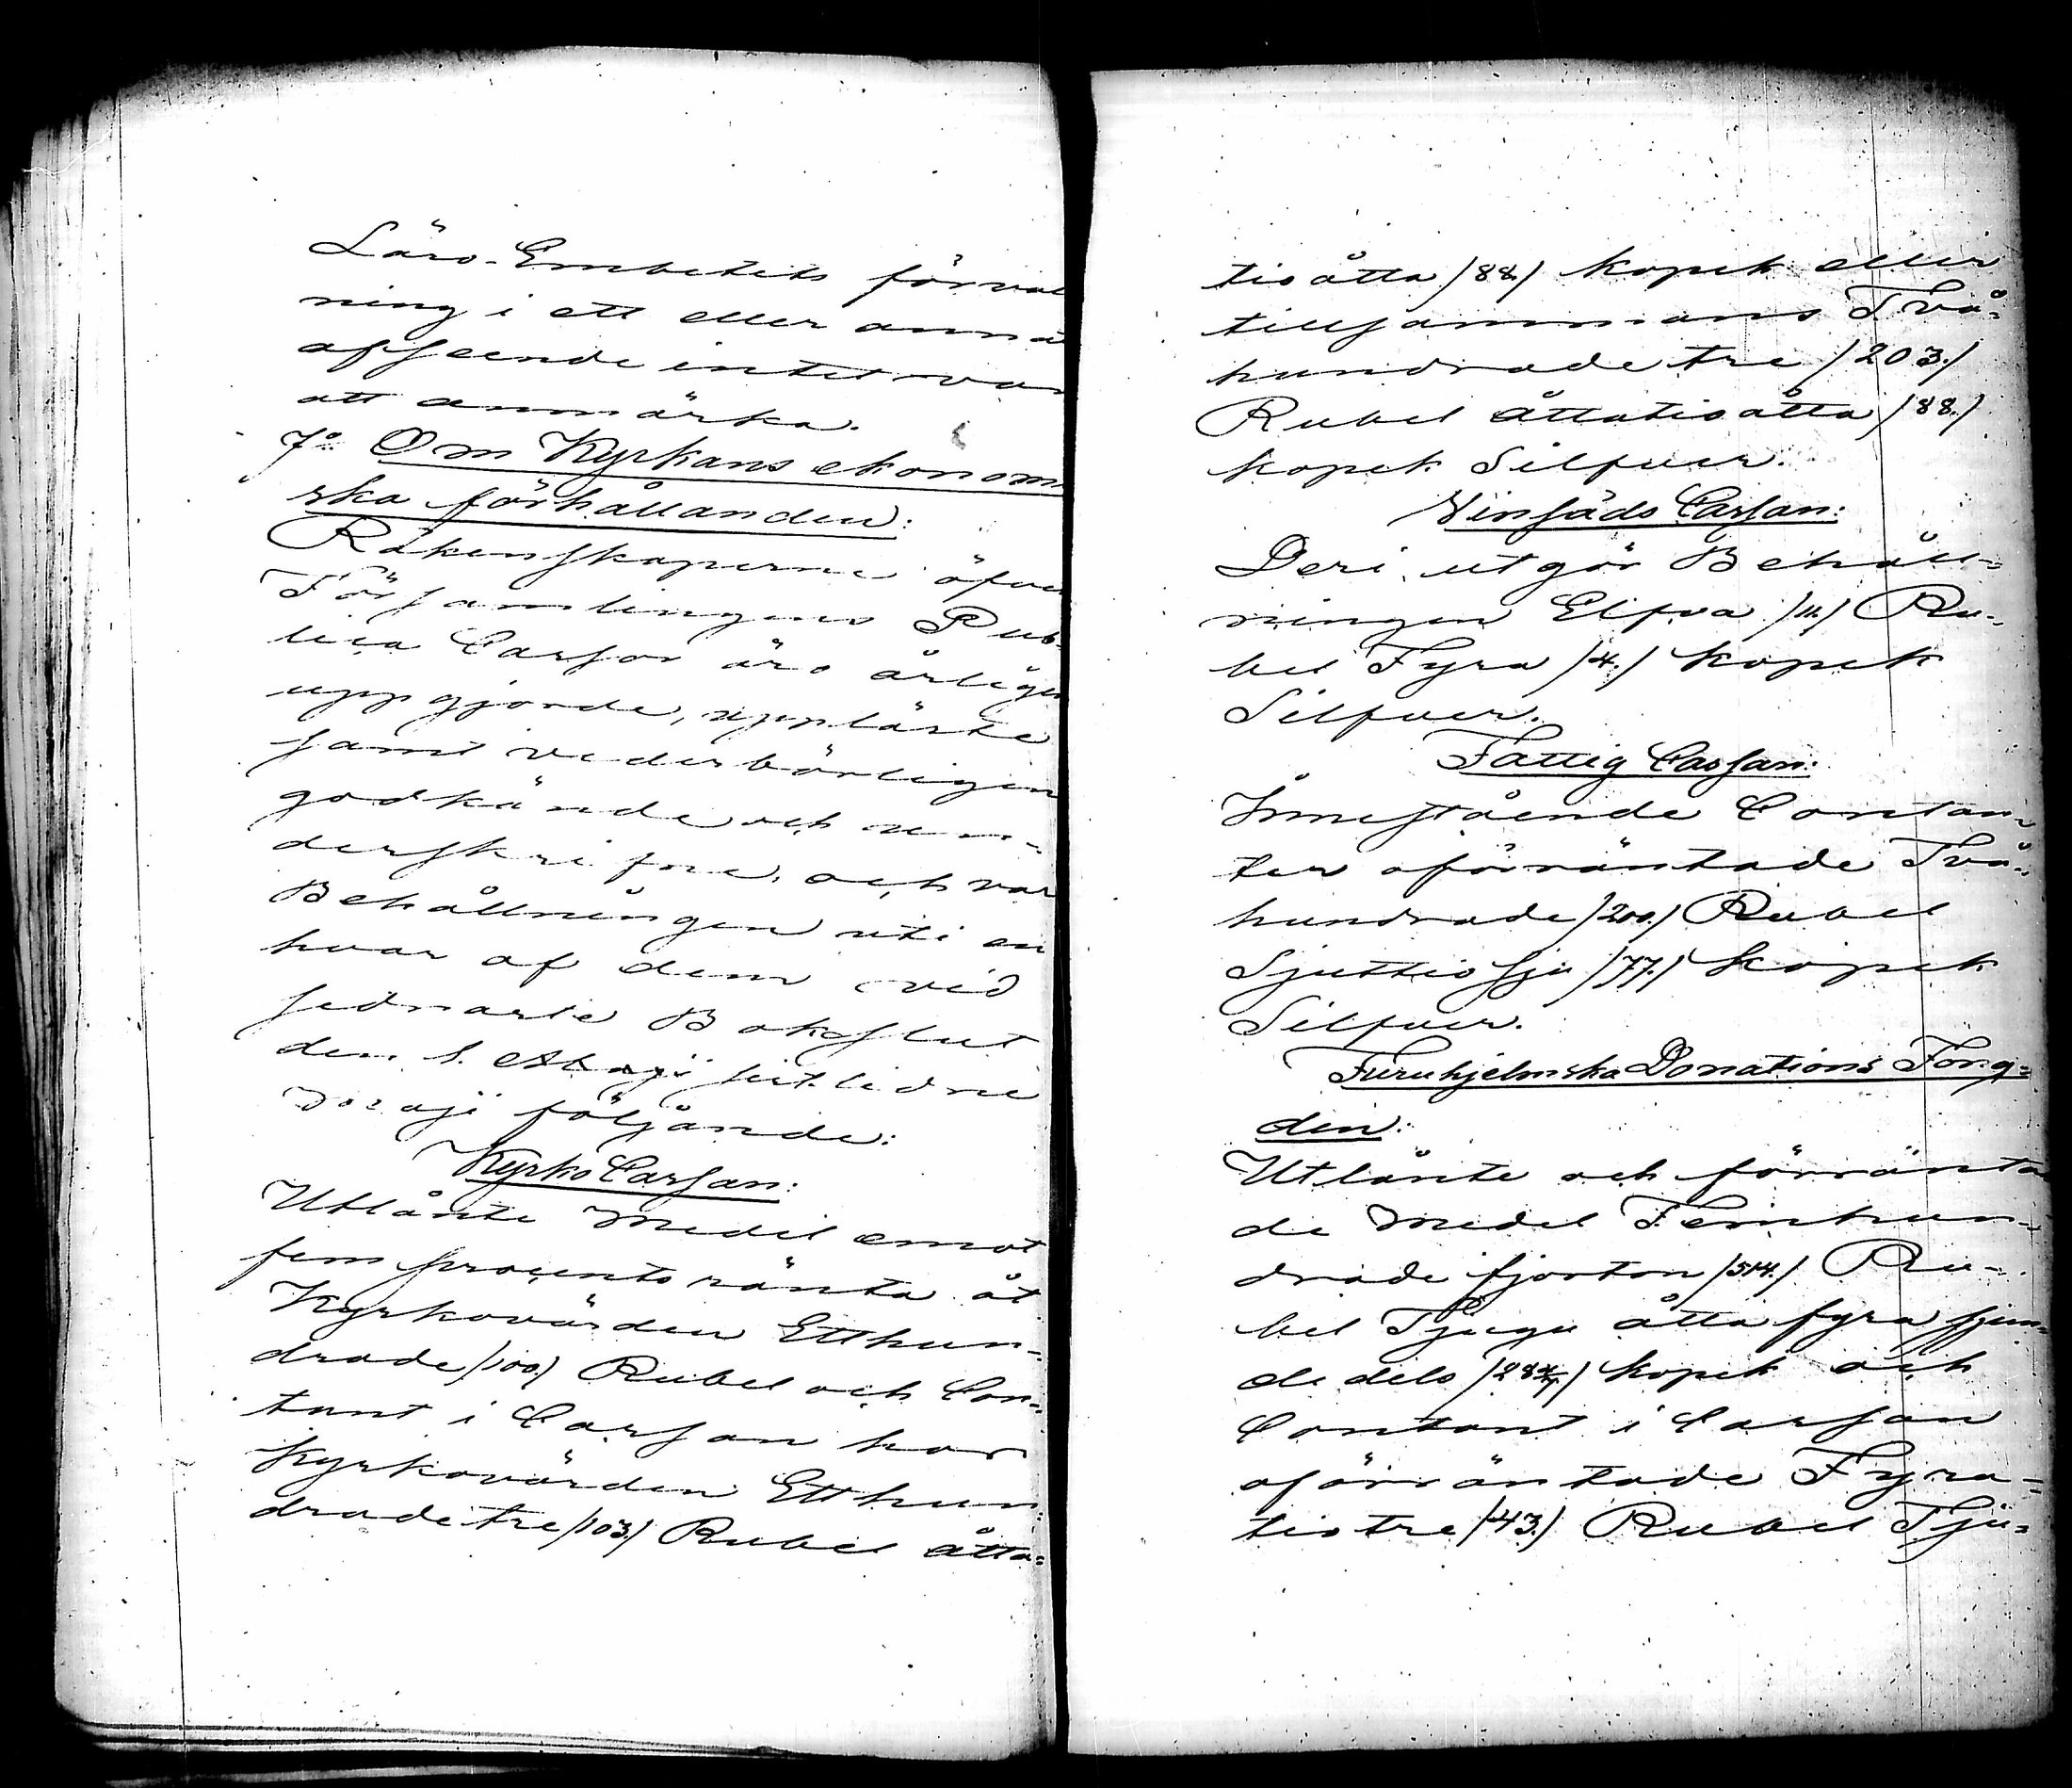 Läro-Embetets förval
ning i ett eller anna
afseende intet var
att anmärka.
7:o Om Kyrkans ekonomi
ska förhållanden:
Räkenskaperne öfver
Församlingens Pub-
lica Cassor äro årligen
uppgjorde, uppläste
samt vederbörligen
godkände och un-
derskrifne, och var
Behållningen uti en
hvar af dem vid
sednaste Bokslut
den 1. Maji sistlidne
följande:
Kyrko Cassan:
Utlånte medel emot
fem procents ränta åt
Kyrkovärden Etthun-
drade /100./ Rubel och Con-
tant i Cassan hos
Kyrkovärden Etthun-
dradetre /103./ Rubel åtta=
tioåtta /88/ kopek eller
tillsammans Två-
hundrade tre /203./
Rubel åttatioåtta /88./
kopek Silfver.
Vinsäds Cassan:
Deri utgör Behåll=
ningen Elfva /11./ Ru-
bel Fyra /4./ kopek
Silfver.
Fattig Cassan:
Innestående Contan-
ter oförräntade Två-
hundrade /200./ Rubel
Sjuttiosju /77./ kopek
Silfver.
Furuhjelmska Donations Fong=
den:
Utlånte och förränta
de medel Femhun-
drade fjorton /514./ Ru-
bel Tjugu åtta fyra sjun-
dedels /28 4/7/ kopek och
Contant i Cassan
oförräntade Fyra-
tiotre /43./ Rubel Tju=